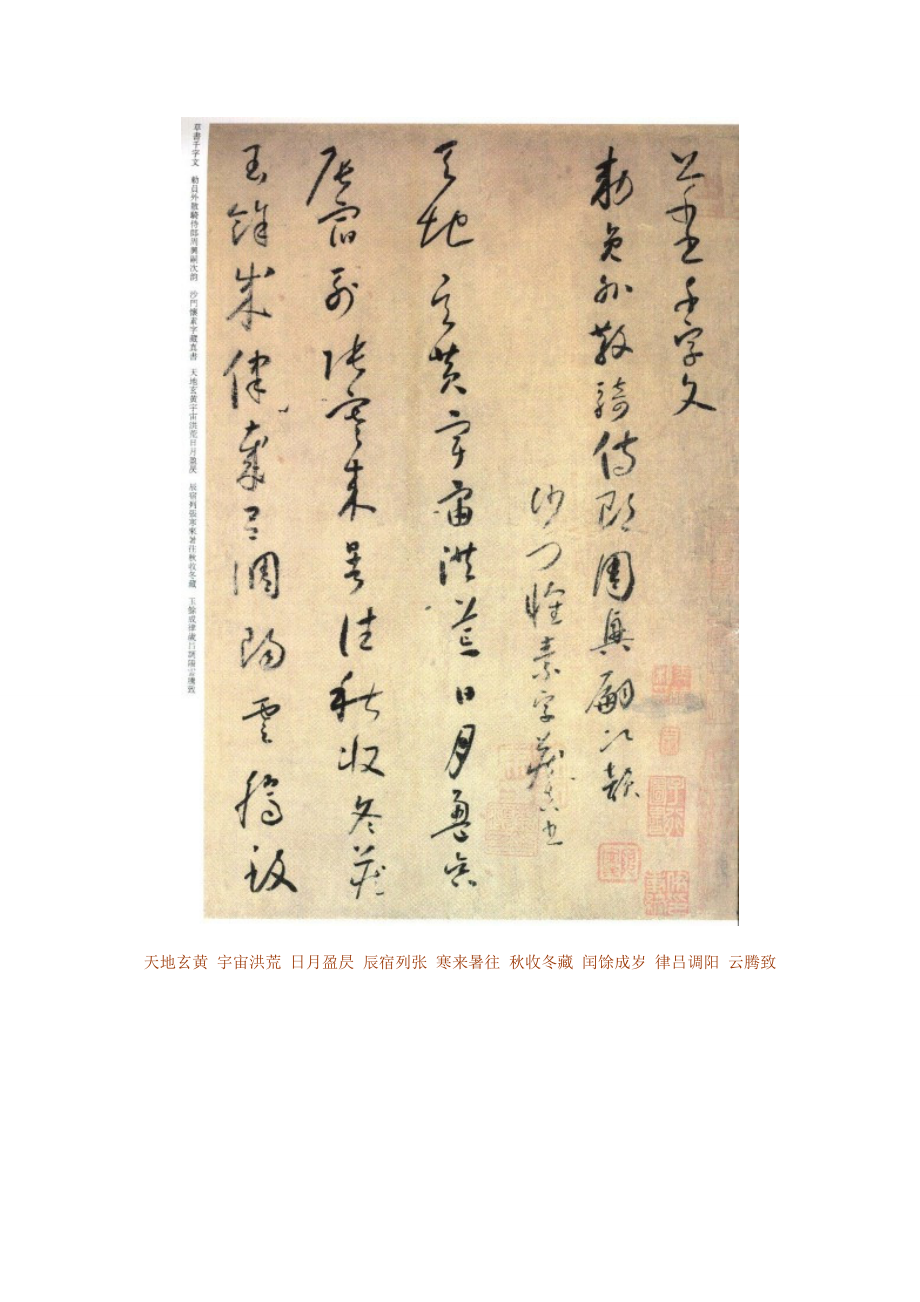 草書千字文
勅員外散騎侍郎周興嗣次韵
沙門懷素字藏真書
天地玄黄宇宙洪荒日月盈昃
辰宿列張寒來暑往秋收冬藏
玉餘成律歲呂調陽雲騰致
草書千字文 勅員外散騎侍郎周興嗣次韵 沙門懷素字藏真書 天地玄黄宇宙洪荒日月盈昃 辰宿列張寒來暑往秋收冬藏 玉餘成律歲呂調陽雲騰致
天地玄黄 宇宙洪荒 日月盈昃 辰宿列张 寒来暑往 秋收冬藏 闰馀成岁 律吕调阳 云腾致